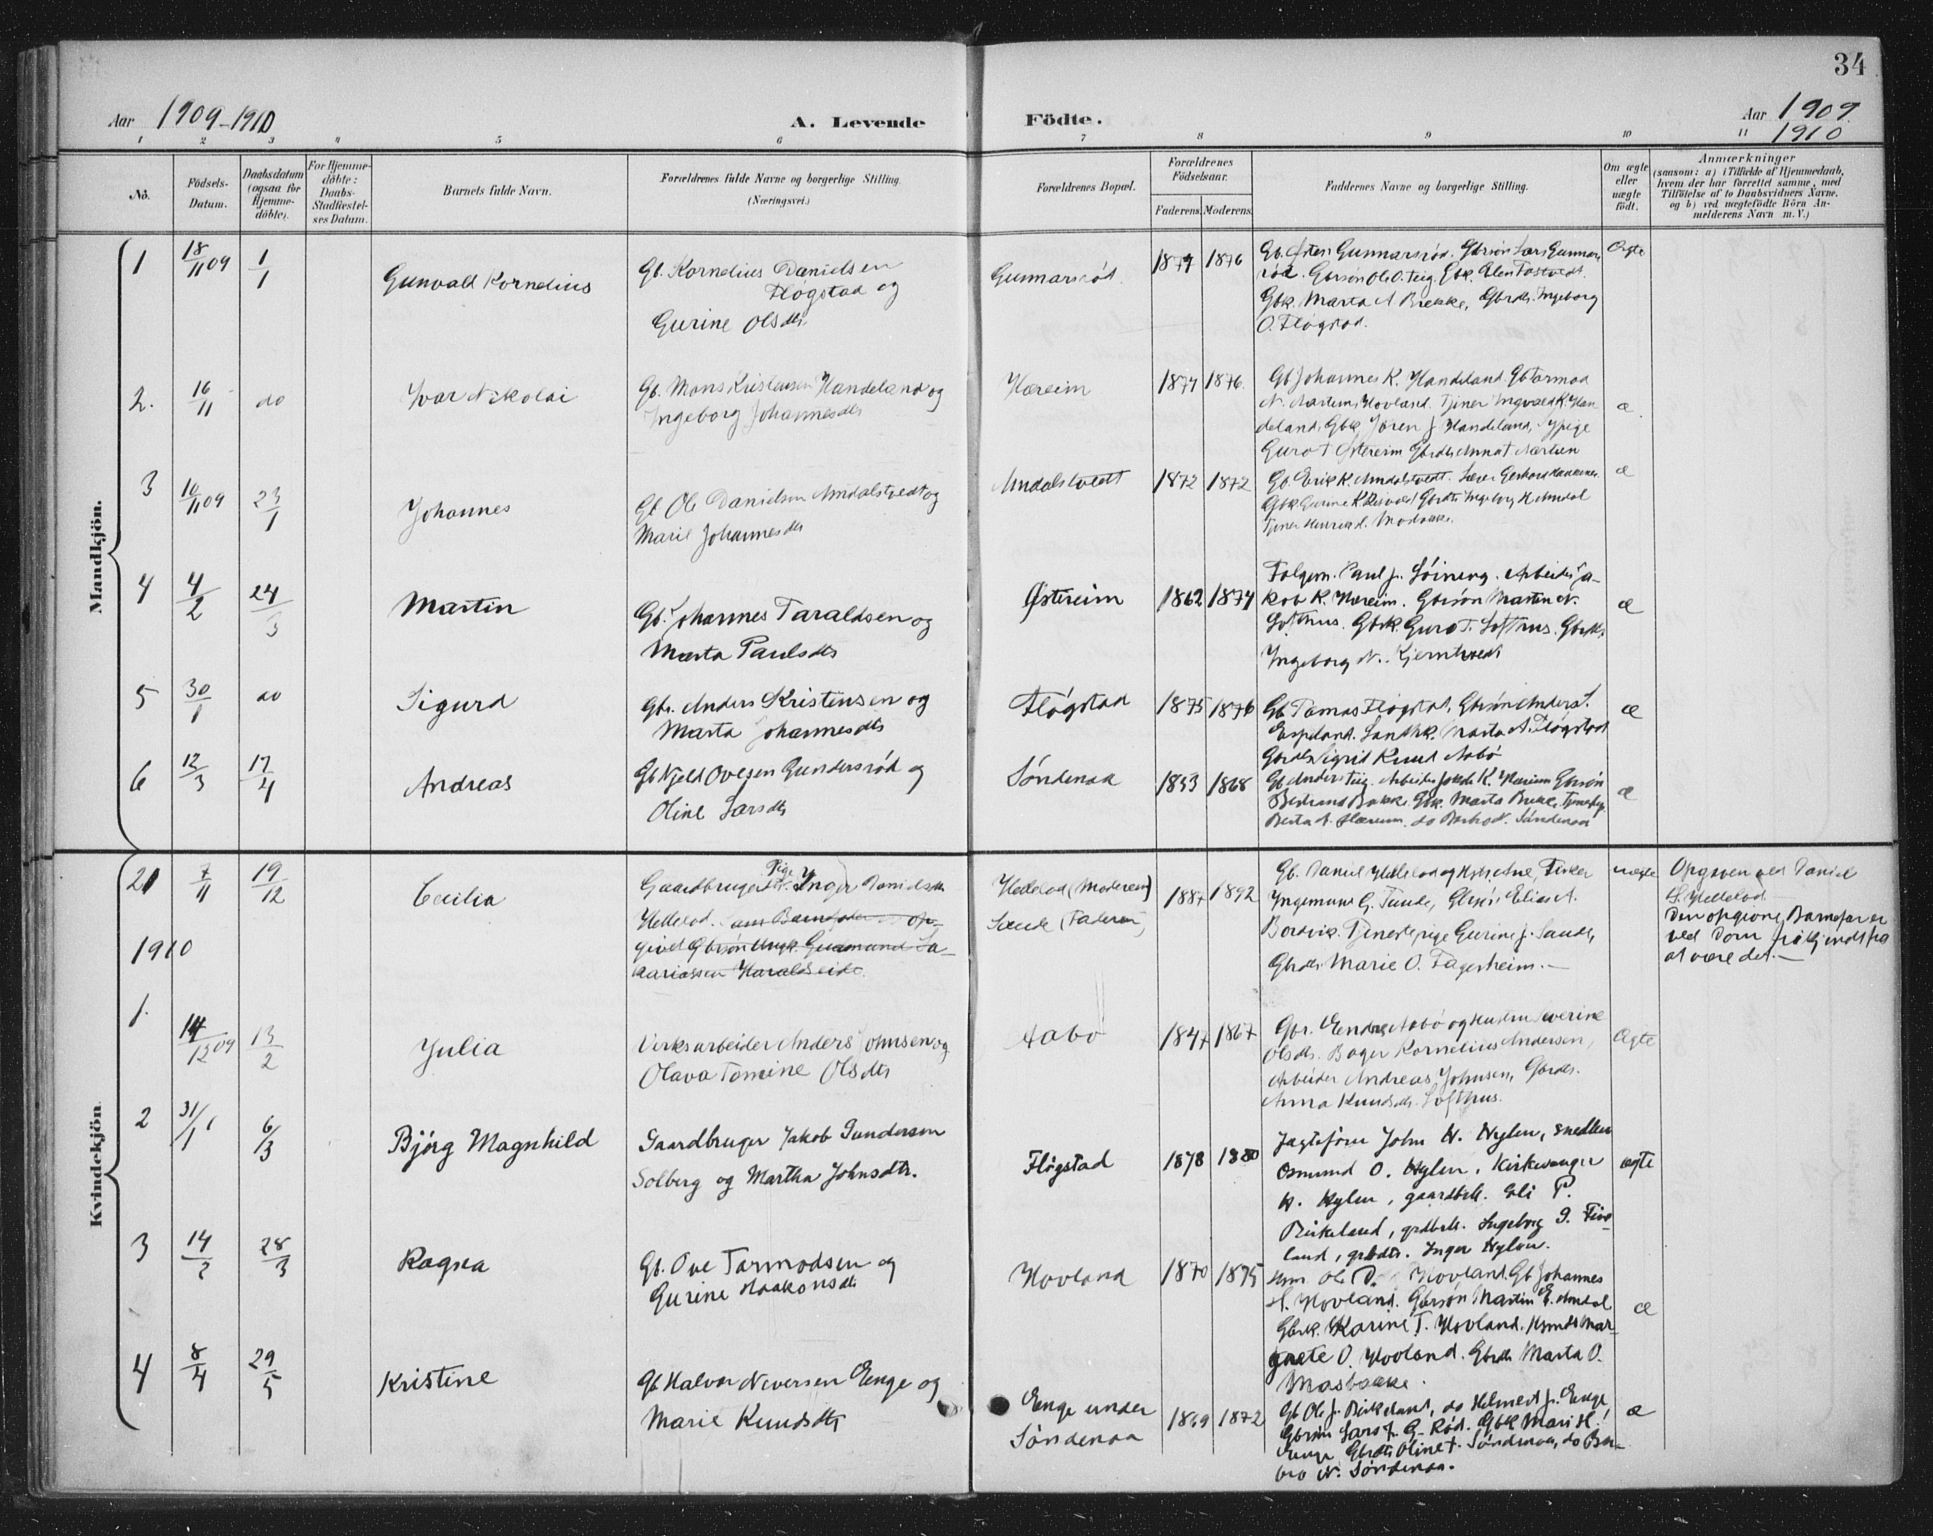 34
Aar 1909-1910
A. Levende
Födte.
Aar 1909.
1910
1 2 3 4 5 6 7 8 9 10 11
No.
Födsels-
Datum.
Daabsdatum
(ogsaa for
Hjemme-
döbte).
For Hjemme-
döbte:
Daabs-
Stadfæstel-
ses Datum.
Barnets fulde Navn.
Forældrenes fulde Navne og borgerlige Stilling.
(Næringsvei.)
Forældrenes Bopæl.
Forældrenes
Födselsaar.
Faderens. Moderens.
Faddernes Navne og borgerlige Stilling.
Om ægte
eller
uægte
födt.
Anmærkninger
(saasom: a) i Tilfælde af Hjemmedaab,
hvem der har forrettet samme, med
Tilföielse af to Daabsvidners Navne,
og b) ved uægtefödte Börn An-
melderens Navn m. V.)
Mandkjön.
1 18/11 09 1/1
Gunvald Kornelius
Gb. Kornelius Danielsen
Fløgstad og
Gurine Olsdtr.
Gunnarsrød
1874 1876
Gb. Østen Gunnarsrød. Gbrsøn Lars Gunnars
rød. Gbrsøn Ole O. Teig. Gbk. Elen Tostvedt.
Gbk. Marta A Brekke, Gbrdtr. Ingeborg
O. Fløgstad.
Ægte
2. 16/11 do
Ivar Nikolai
Gb. Mons Kristensen Handeland og
Ingeborg Johannesdtr
Hæreim
1874 1876.
Gb Johannes K. Handeland Gb Tormod
N. Hovland. Tjener Ingvald K. Han
deland, Gbk J. Handeland,
Guro T Østereim Gbrdtr
æ.
3 16/11 09 23/1
Johannes
Gb Ole Danielsen Amdalstvedt og
Marie Johannesdtr
Amdalstvedt
1872 1872
Gb. Erik K. Amdalstvedt. Lærer
Gbk Gurine K Gbrdtr Ingeborg H Amdal
Tjener
æ
4 4/2 24/3
Martin
Gb. Johannes Taraldsen og
Marta Paulsdtr
Østereim
1862 1874
Folgem. Paul J. Arbeider Ja-
kob K. Hæreim. Gbrsøn Martin N.
Lofthus. Gbrk. Guro T. Lofthus. Gbrk.
Ingeborg N.
æ
5 30/1 do
Sigurd
Gbr. Anders Kristensen og
Marta Johannesdtr
Fløgstad
1875 1876
Gb Tomas Fløgstad, Gbrsøn Anders L.
Espeland. Marta A. Fløgstad
Gbrdtr Sigrid Knud Aabø
æ
6 12/3 17/4
Andreas
Gb Njeld Ovesen Gundersrød og
Oline Larsdtr
Søndenaa
1853 1868
Gb Anders Teig. Arbeider Jakob K. Hæreim Gbrsøn
Bertrand Bakke. Gbk. Marta Brekke. Tjenestep.
Berta A. Hæreim. do N. Søndenaa
æ
Kvindekjön.
21 7/11 19/12
Cecilia
Pige
Gaardbrugerdtr. Inger Danielsdtr
Hellelod. som Barnefader er op-
givet Gbrsøn Ungk. Gudmund Za-
kariassen Haraldseide.
Hellelod (Moderen)
Sande (Faderen)
1887 1892
Gb. Daniel Hellelod og Hustru Fisker
Ingemann G. Tunde, Gbrsøn Elias A.
Bordvik. Tjenestepige Gurine J. Sande,
Gbrdtr. Marie O. Fagerheim.—
uægte
Opgiven ved Daniel
S. Hellelod
Den opgivne Barnefar er
ved Dom frikjendt fra
at være det.—
1910
1. 14/12 09 13/2
Julia
Verksarbeider Anders Johnsen og
Olava Tomine Olsdtr
Aabø
1847 1867
Gbr. Endre Aabø og Hustru Severine
Olsdtr. Bager Kornelius Andersen,
Arbeider Andreas Johnsen, Gbrdtr.
Anna Knudsdtr. Lofthus.
Ægte
2 31/1 6/3
Bjórg Magnhild
Gaardbruger Jakob Gundersen
Solberg og Martha Johnsdtr.
Fløgstad
1878 1880
Jagtefører John H. Hylen, snedker
Osmund O. Hylen, Kirkesanger
H. Hylen, gaardbrk. Eli P.
Birkeland, grdbrk. Ingeborg S. Five
land, grbdtr. Inger Hylen.
ægte
3 14/2 28/3
Ragna
Gb. Ove Tormodsen og
Gurine Haakonsdtr
Hovland
1870 1875
Hsm Ole D. Hovland. Gb Johannes
H. Hovland. Gbrsøn Martin E. Amdal
Gbrk. Karine T. Hovland. Mar-
grete O. Hovland. Gbrdtr Marta O.
Masbakke.
æ
4 8/4 29/5
Kristine
Gb Halvor Neversen Enge og
Marie Knudsdtr
Enge under
Søndenaa
1869 1872
Gb Ole J. Birkeland, do Helmert J. Enge,
Gbrsøn Lars J. G. Rød. Gbk Mari H.
Enge Gbrdtr Oline J. Søndenaa, do Bar-
bro N. Søndenaa.
æ